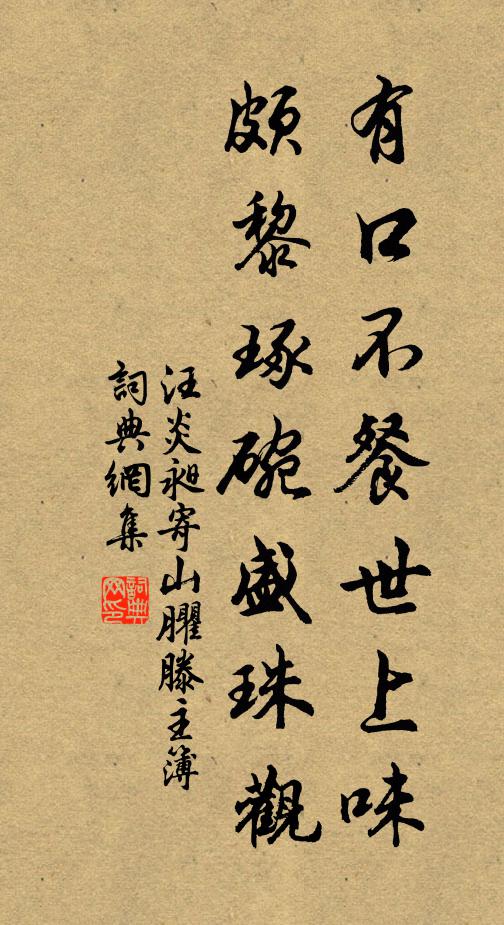 有口不餐世上味
頗黎琢碗盛珠觀
汪炎昶寄山臞滕主簿
詞典網集
詞典網印